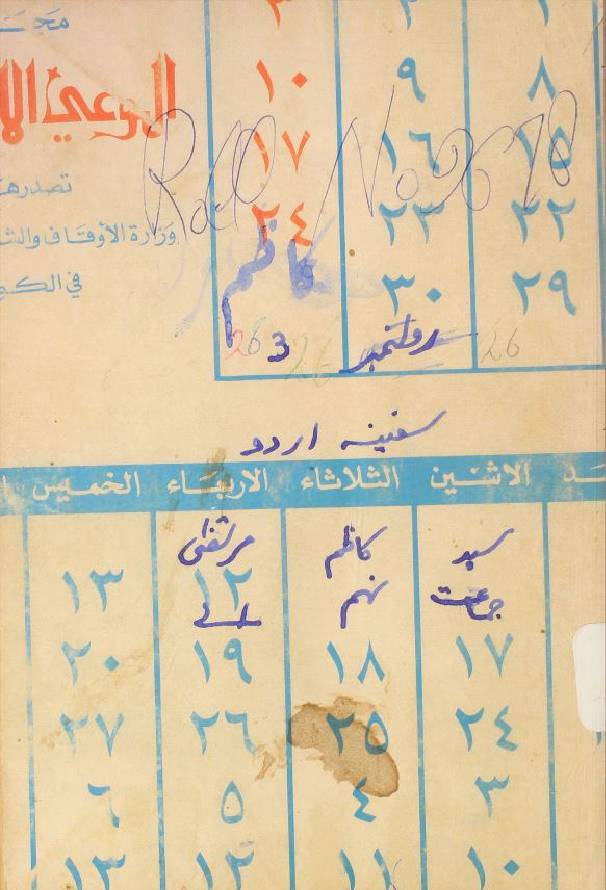 ١ ٢ ٣
٨ ٩ ١٠
١٥ ١٦ ١٧
٢٢ ٢٣ ٢٤
٢٩ ٣٠
Roll No
كاظم
26 3 26 26
رولنمبر
تصدرها
وزارة الأوقاف والش
في الك
سفینہ اردو
الاثنين الثلاثاء الاربعاء الخميس
سید کاظم مرتضی
جماعت نہم
١٢ ١٣
١٧ ١٨ ١٩ ٢٠
٢٤ ٢٥ ٢٦ ٢٧
٣ ٤ ٥ ٦
١٠ ١١ ١٢ ١٣